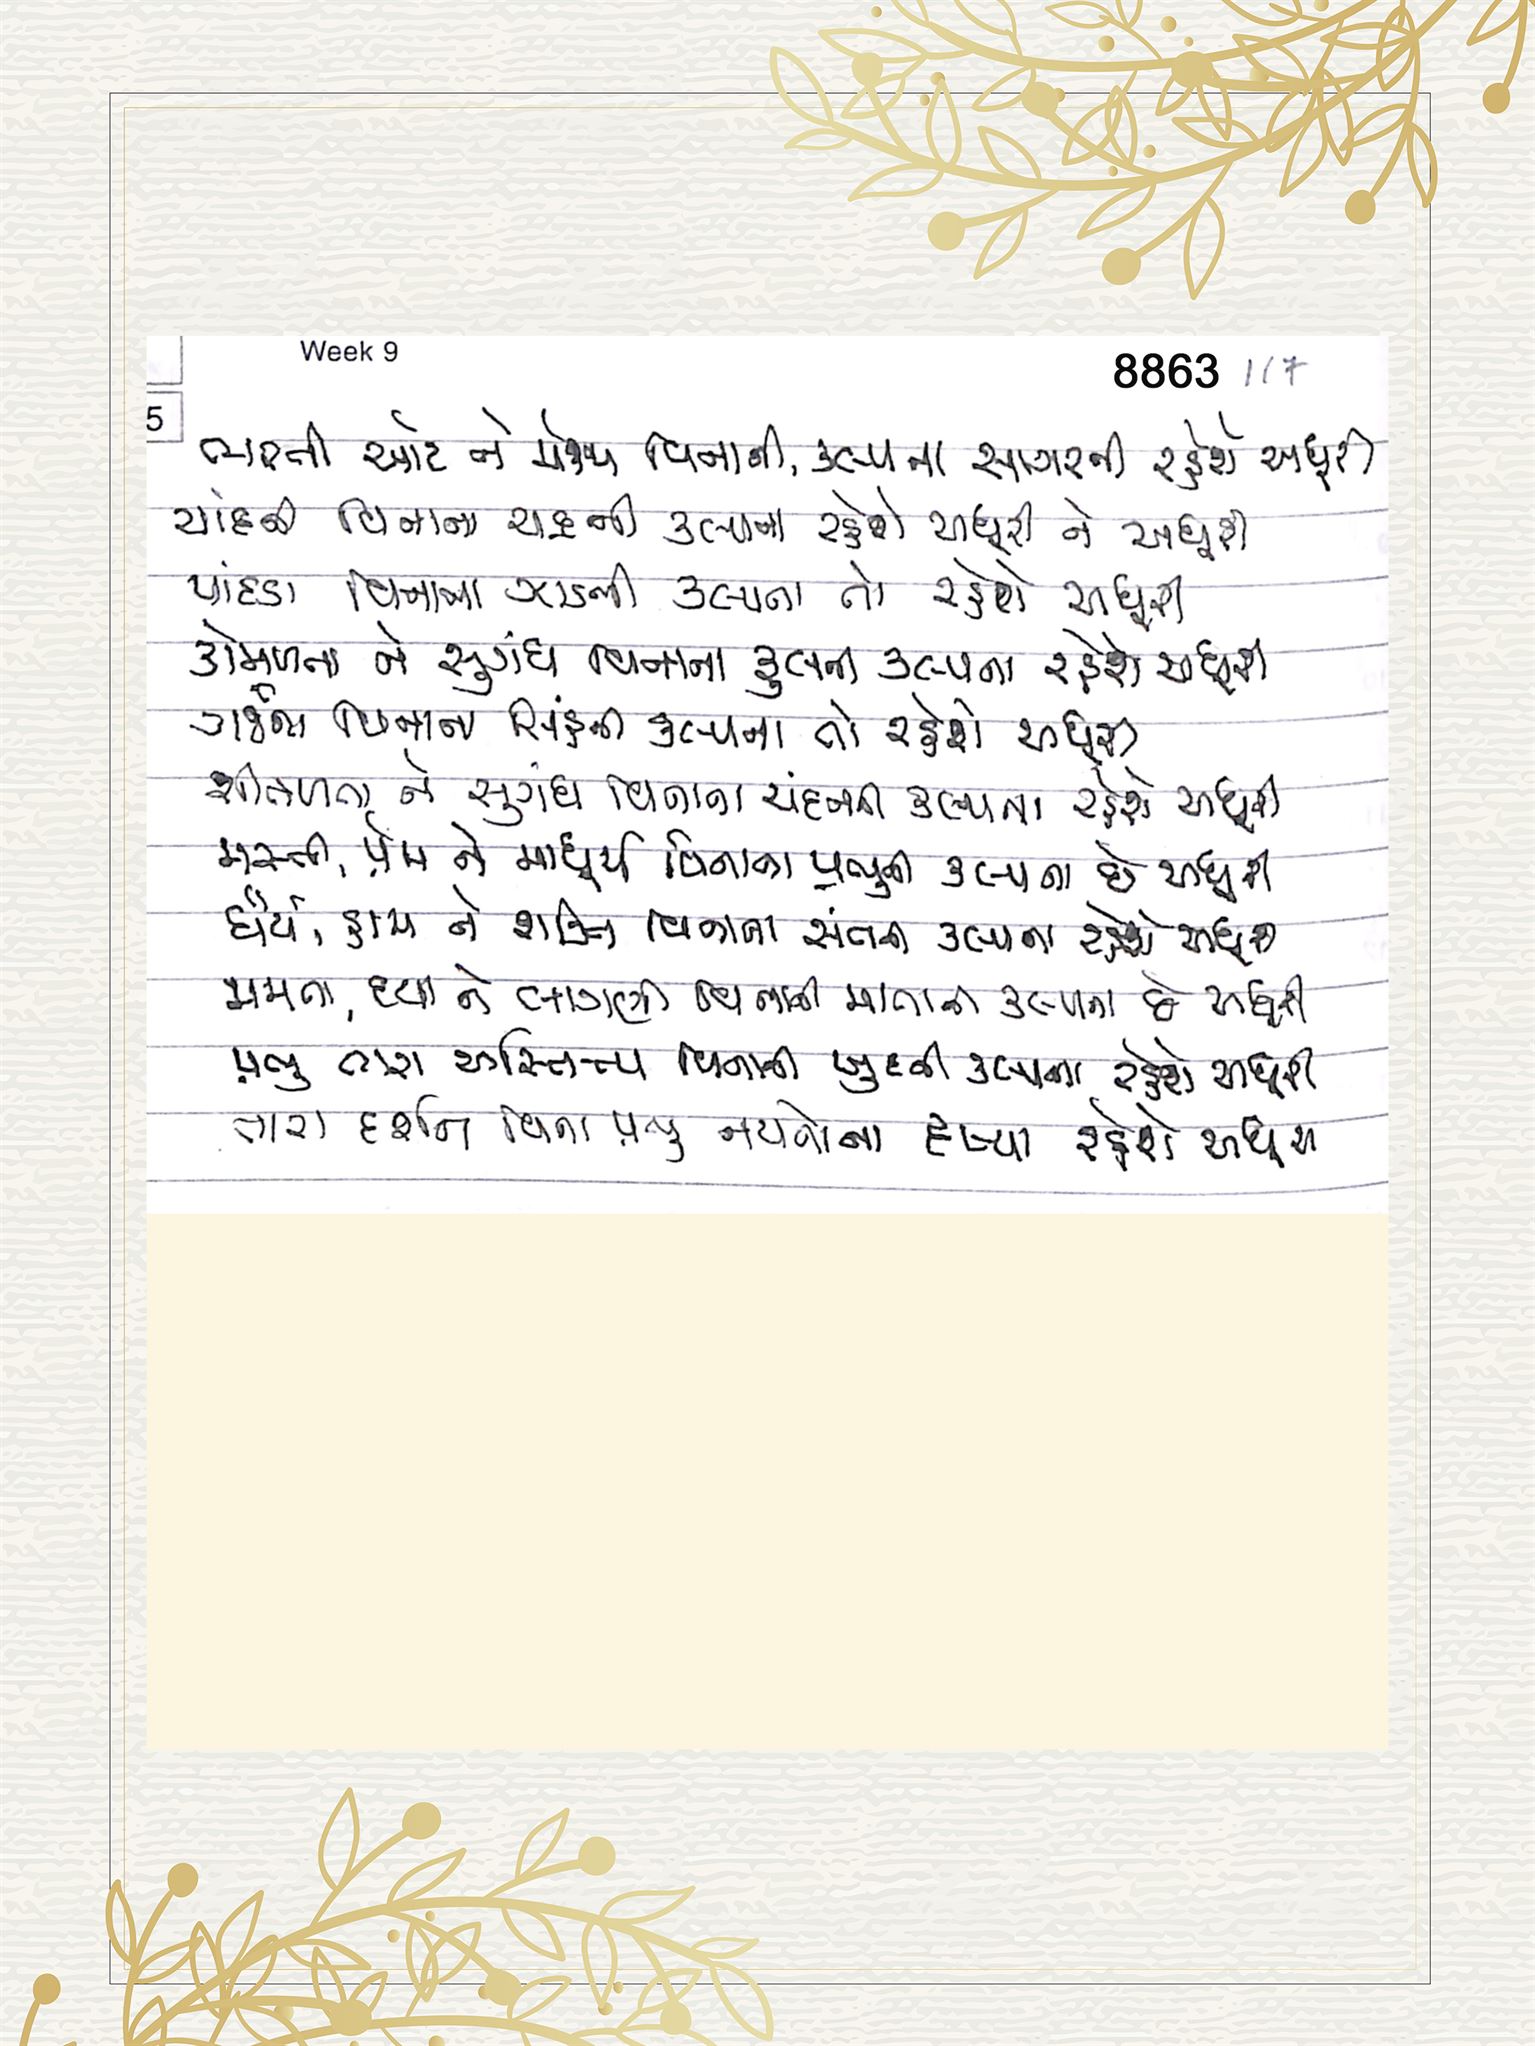 Week 9
8863 1/7
5
ભરતી ઓટ ને વિનાની, કલ્પના સાગરની રહેશે અધૂરી
ચાંદની વિનાના ચંદ્રની કલ્પના રહેશે અધૂરી ને અધૂરી
પાંદડા વિનાના ઝાડની કલ્પના તો રહેશે અધૂરી
કોમળતા ને સુગંધ વિનાના ફુલની કલ્પના રહેશે અધૂરી
ગર્જના વિનાના સિંહની કલ્પના તો રહેશે અધૂરી
શીતળતા ને સુગંધ વિનાના ચંદનની કલ્પના રહેશે અધૂરી
મસ્તી, પ્રેમ ને માધૂર્ય વિનાના પ્રભુની કલ્પના છે અધૂરી
ધૈર્ય, હામ ને શક્તિ વિનાના સંતની કલ્પના રહેશે અધૂરી
મમતા, દયા ને લાગણી વિનાની માતાની કલ્પના છે અધૂરી
પ્રભુ તારા અસ્તિત્વ વિનાની ખુદની કલ્પના રહેશે અધૂરી
તારા દર્શન વિના પ્રભુ નયનોના રહેશે અધૂરા